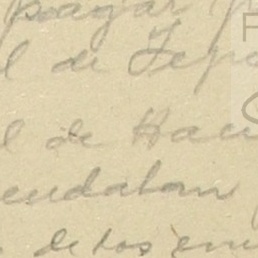 pagar
l de Tepo
l de Hau
endaban
de los en